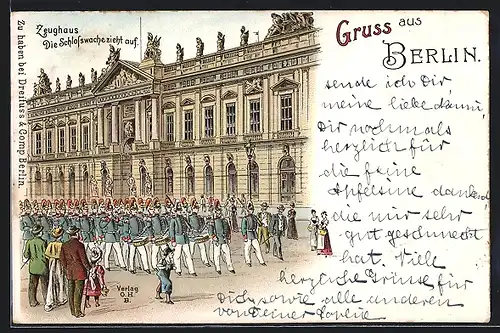 Zeughaus
Die Schloſswache zieht auf.
Zu haben bei Dreifuss & Comp Berlin.
Gruss aus
BERLIN.
sende ich Dir,
meine liebe
Dir nochmals
herzlich für
die feine
Apfelsine dankend
die mir sehr
gut geschmeckt
hat. Viele
herzliche Grüsse für
Dich, sowie alle anderen
von Deiner
Verlag
O.H.
B.